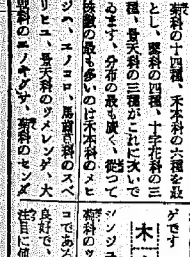 菊科の十四種、禾本科の六種を最
とし、蓼科の四種、十字花科の三
種、景天科の三種がこれに次いで
ゐます、分布の最も廣く、從つて
株數の最も多いのは禾本科のメヒ
ジハ、エノコロ、馬齒莧科のスベ
リヒユ、景天科のツメレンゲ、大
戟科のエノキグサ、菊科のセンダ
ゲです
木
シンジユ
菊科のツ
コであろ
良好で、
注目に値